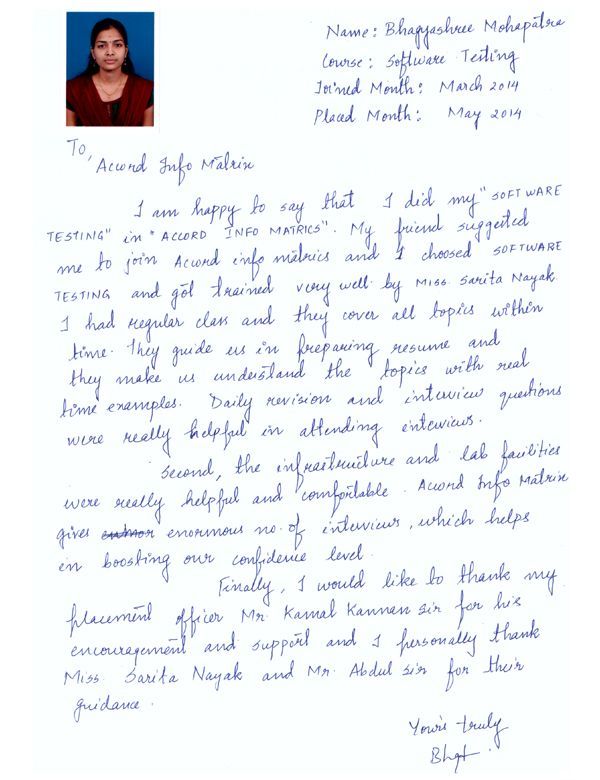 Name: Bhagyashree Mohapatra
Course: Software Testing
Joined Month: March 2014
Placed Month: May 2014
To,
Accord Info Matrix
I am happy to say that I did my "SOFTWARE
TESTING" in "ACCORD INFO MATRICS". My friend suggested
me to join Accord info matrics and I choosed SOFTWARE
TESTING and got trained very well by MISS. Sarita Nayak
I had regular class and they cover all topics within
time. They guide us in preparing resume and
they make us understand the topics with real
time examples. Daily revision and interview questions
were really helpful in attending interviews.
Second, the infrastructure and lab facilities
were really helpful and comfortable. Accord Info Matrix
gives enormous no. of interviews, which helps
in boosting our confidence level.
Finally, I would like to thank my
placement officer Mr. Kamal Kannan sir for his
encouragement and support and I personally thank
Miss. Sarita Nayak and Mr. Abdul sir for their
guidance.
Your's truly